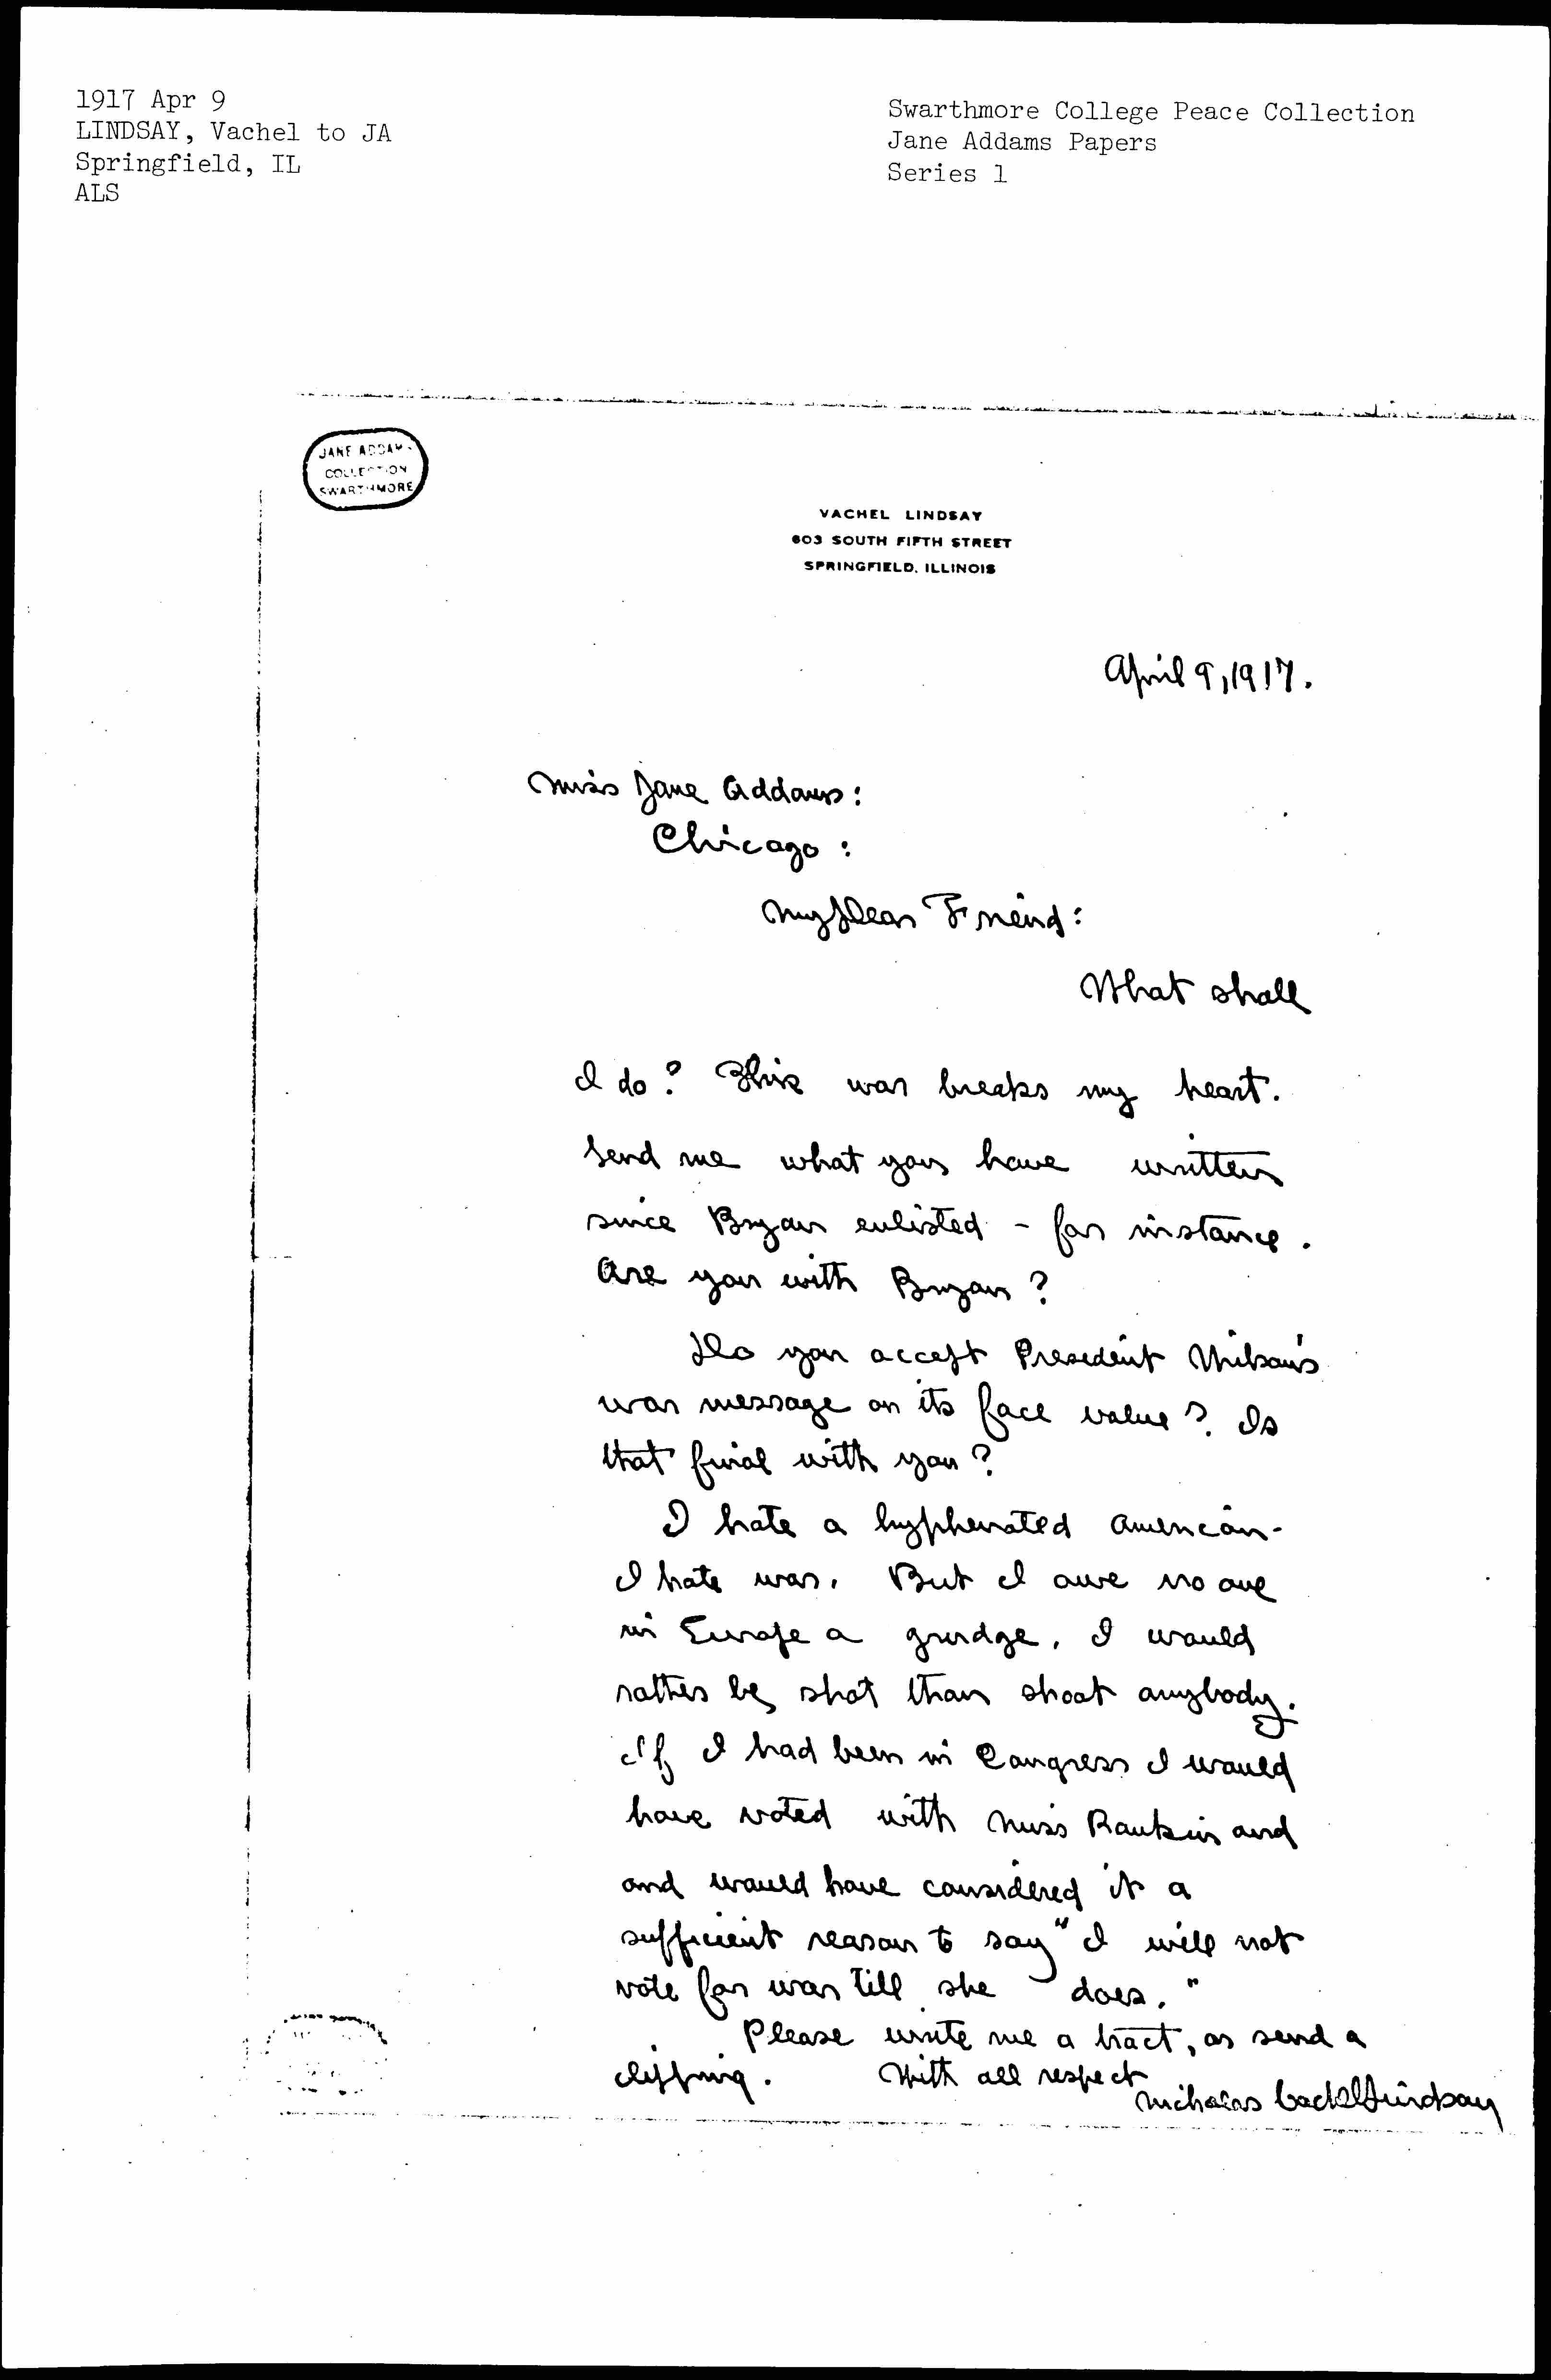 1917 Apr 9
LINDSAY, Vachel to JA
Springfield, IL
ALS
Swarthmore College Peace Collection
Jane Addams Papers
Series 1
JANE ADDAMS
COLLECTION
SWARTHMORE
VACHEL LINDSAY
603 SOUTH FIFTH STREET
SPRINGFIELD, ILLINOIS
April 9, 1917.
Miss Jane Addams:
Chicago:
My Dear Friend:
What shall
I do? This war breaks my heart.
Send me what you have written
since Bryan enlisted - for instance.
Are you with Bryan?
Do you accept President Wilson's
war message on its face value? Is
that final with you?
I hate a hyphenated American-
I hate war. But I owe no one
in Europe a grudge. I would
rather be shot than shoot anybody.
If I had been in Congress I would
have voted with Miss Rankin and
and would have considered it a
sufficient reason to say "I will not
vote for war till she does."
Please write me a tract, or send a
clipping. With all respect
Nicholas Vachel Lindsay